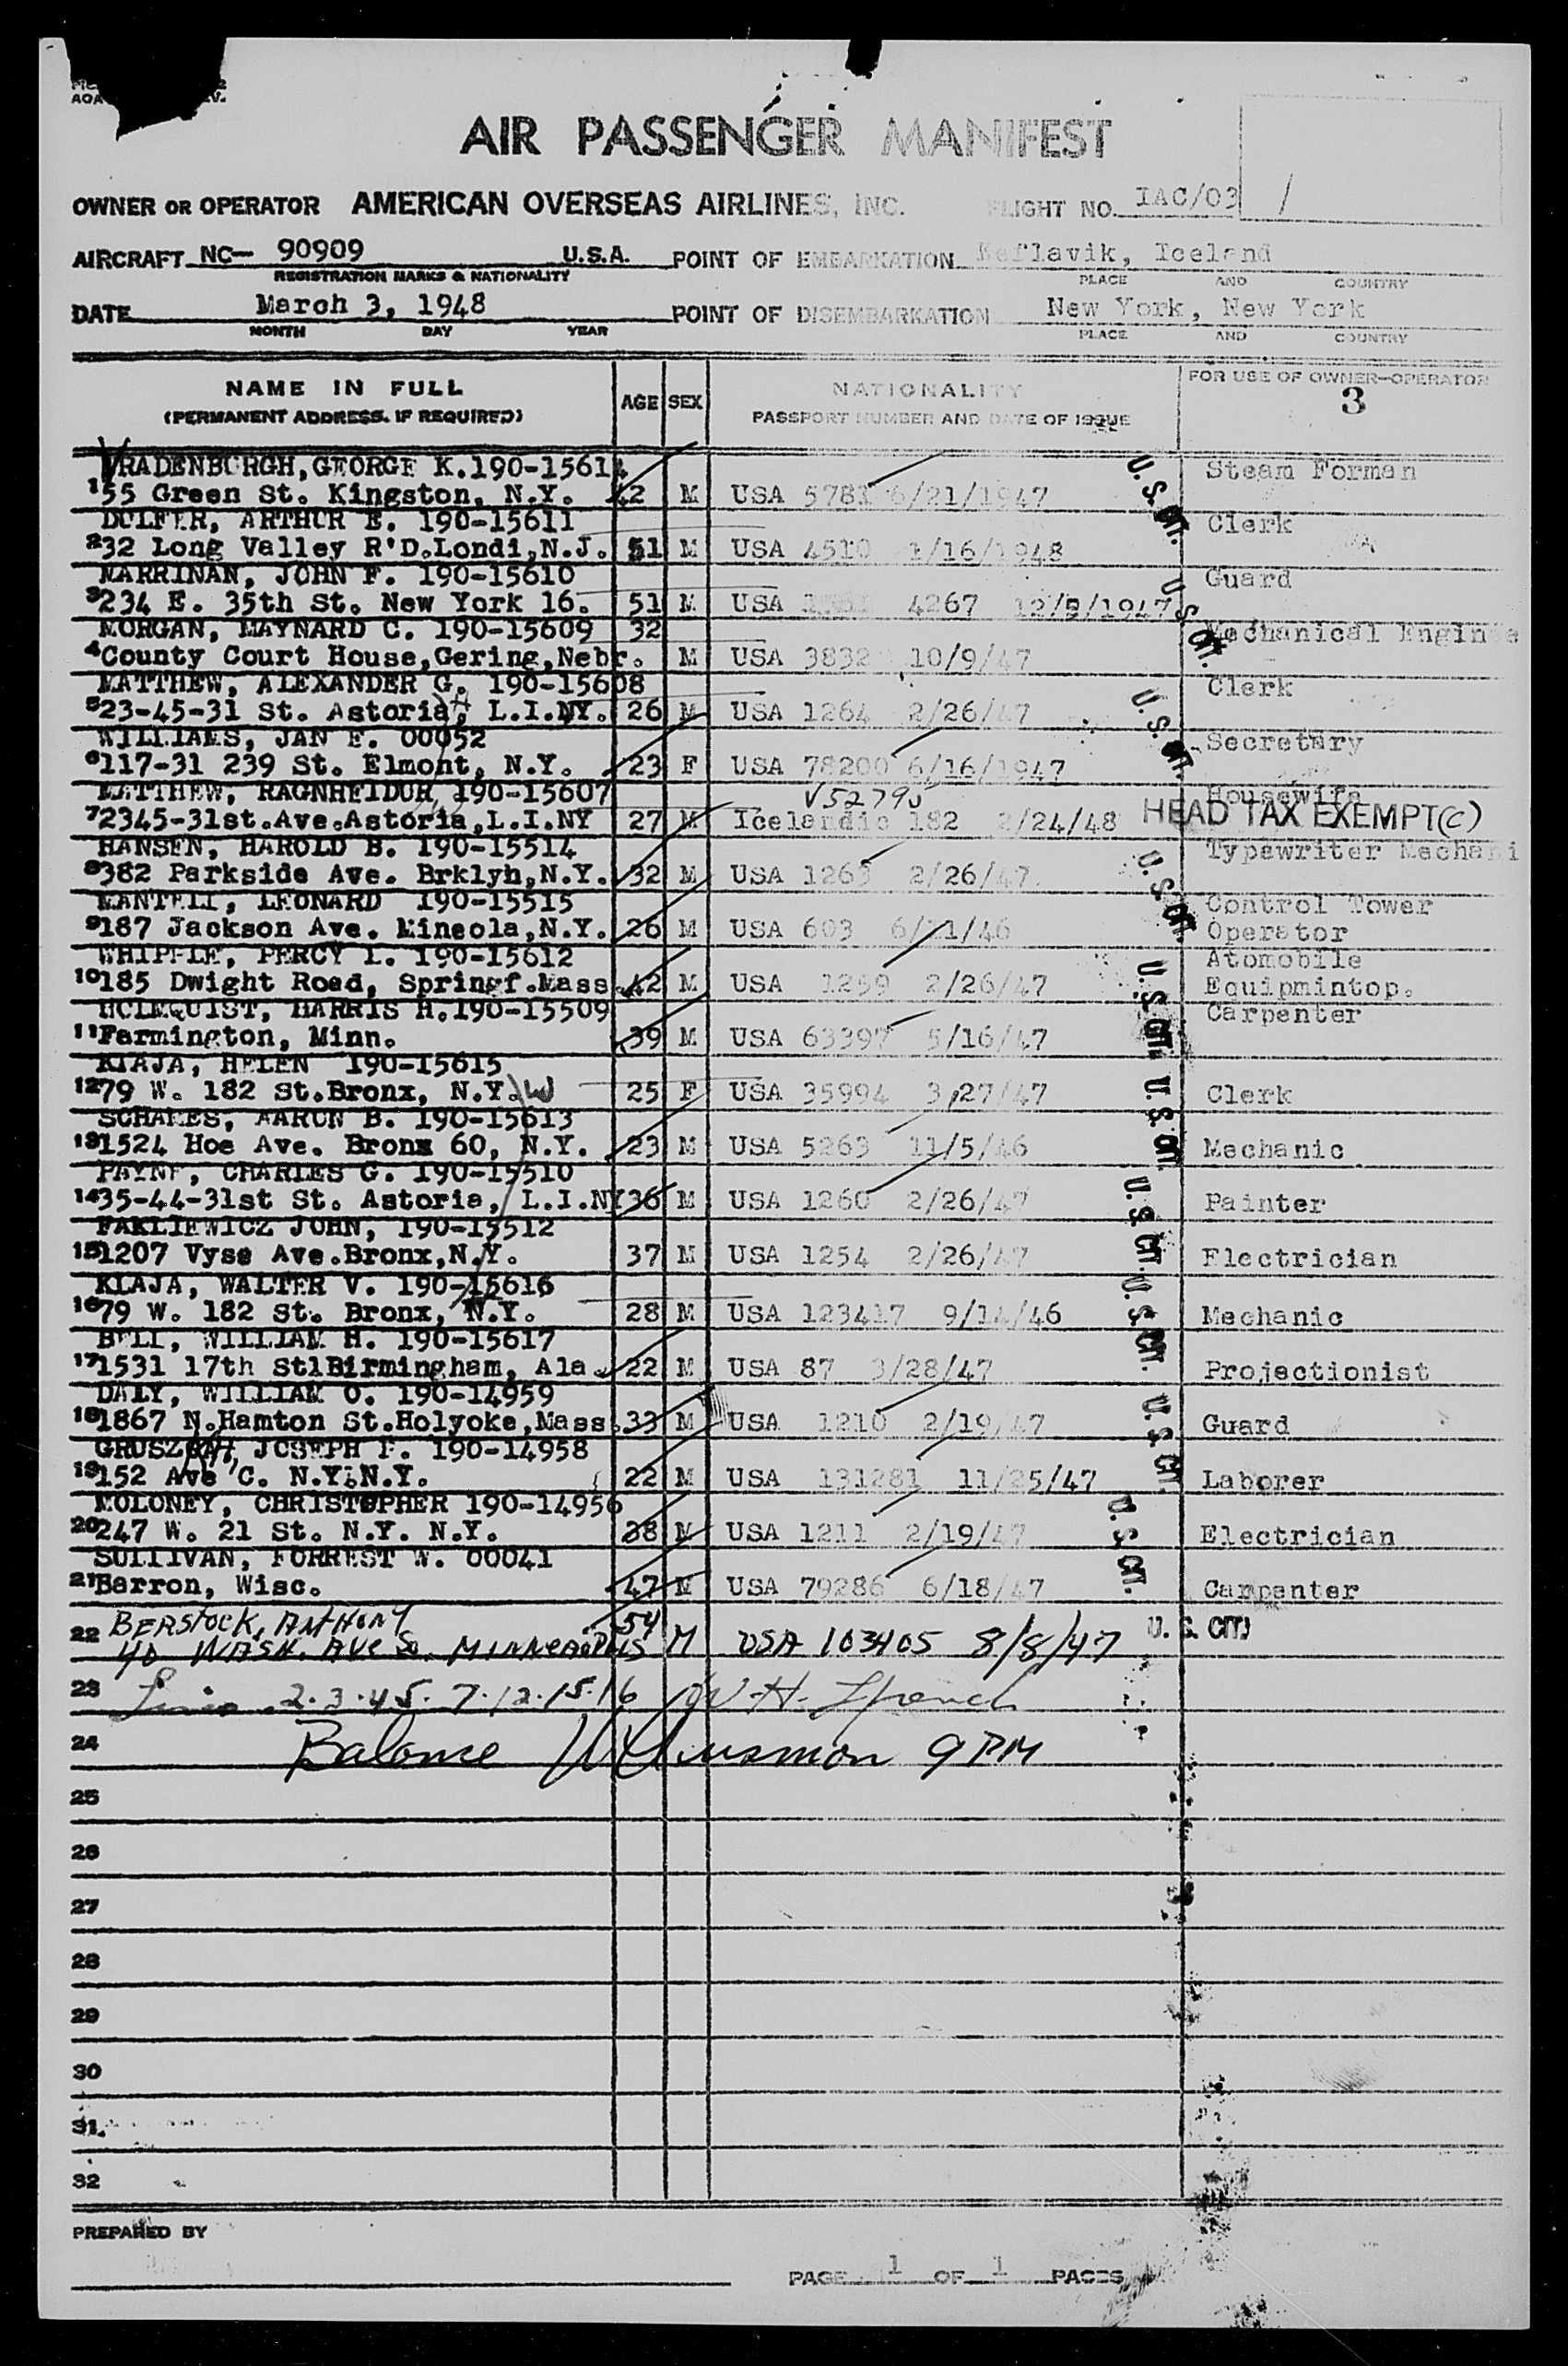 AIR PASSENGER MANIFEST
OWNER OR OPERATOR AMERICAN OVERSEAS AIRLINES, INC. FLIGHT NO. IAC/03 /
AIRCRAFT NC— 90909 U.S.A. POINT OF EMBARKATION Keflavik, Iceland
REGISTRATION MARKS & NATIONALITY PLACE AND COUNTRY
DATE March 3, 1948 POINT OF DISEMBARKATION New York, New York
MONTH DAY YEAR PLACE AND COUNTRY
NAME IN FULL AGE SEX NATIONALITY FOR USE OF OWNER—OPERATOR
(PERMANENT ADDRESS, IF REQUIRED) PASSPORT NUMBER AND DATE OF ISSUE 3
VRADENBURGH, GEORGE K. 190-15614 Steam Forman
1 55 Green St. Kingston, N.Y. 42 M USA 5781 6/21/1947 U.S. CIT.
DULFER, ARTHUR E. 190-15611 Clerk
2 32 Long Valley R'D.Londi,N.J. 51 M USA 4510 1/16/1948
MARRINAN, JOHN F. 190-15610 Guard
3 234 E. 35th St. New York 16. 51 M USA 4267 12/9/1947 U.S. CIT.
MORGAN, MAYNARD C. 190-15609 32 Mechanical Enginee
4 County Court House,Gering,Nebr. M USA 3832 10/9/47
MATTHEW, ALEXANDER G. 190-15608 Clerk
5 23-45-31 St. Astoria, L.I.NY. 26 M USA 1264 2/26/47 U.S. CIT.
WILLIAMS, JAN E. 00052 Secretary
6 117-31 239 St. Elmont, N.Y. 23 F USA 78200 6/16/1947
MATTHEW, RAGNHEIDUR 190-15607 V52790 Housewife
7 2345-31st.Ave.Astoria,L.I.NY 27 M Icelandic 182 2/24/48 HEAD TAX EXEMPT(C)
HANSEN, HAROLD B. 190-15514 Typewriter Mechani
8 382 Parkside Ave. Brklyn,N.Y. 32 M USA 1263 2/26/47 U.S. CIT.
MANTELL, LEONARD 190-15515 Control Tower
9 187 Jackson Ave. Mineola,N.Y. 26 M USA 603 6/21/46 Operator
WHIPPLE, PERCY L. 190-15612 Atomobile
10 185 Dwight Road, Springf.Mass. 42 M USA 1259 2/26/47 U.S. CIT. Equipmintop.
HOLMQUIST, HARRIS H.190-15509 Carpenter
11 Farmington, Minn. 39 M USA 63397 5/16/47
KLAJA, HELEN 190-15615
12 79 W. 182 St.Bronx, N.Y. W 25 F USA 35994 3/27/47 U.S. CIT. Clerk
SCHAMES, AARON B. 190-15613
13 1524 Hoe Ave. Bronx 60, N.Y. 23 M USA 5263 11/5/46 Mechanic
PAYNE, CHARLES G. 190-15510
14 35-44-31st St. Astoria, L.I.NY 36 M USA 1260 2/26/47 U.S. CIT. Painter
FAKLIEWICZ JOHN, 190-15512
15 1207 Vyse Ave.Bronx,N.Y. 37 M USA 1254 2/26/47 Electrician
KLAJA, WALTER V. 190-15616
16 79 W. 182 St. Bronx, N.Y. 28 M USA 123417 9/14/46 U.S. CIT. Mechanic
BELL, WILLIAM H. 190-15617
17 1531 17th StlBirmingham, Ala. 22 M USA 87 3/28/47 Projectionist
DALY, WILLIAM O. 190-14959
18 1867 N.Hamton St.Holyoke,Mass. 33 M USA 1210 2/19/47 U.S. CIT. Guard
JOSEPH P. 190-14958
19 152 Ave C. N.Y.N.Y. 22 M USA 131281 11/25/47 Laborer
MOLONEY, CHRISTOPHER 190-14956
20 247 W. 21 St. N.Y. N.Y. 38 M USA 1211 2/19/47 U.S. CIT. Electrician
SULLIVAN, FORREST W. 00041
21 Barron, Wisc. 47 M USA 79286 6/18/47 Carpenter
BERSTOCK, ANTHONY
22 40 WASH. AVE So. MINNEAPOLIS 54 M USA 103405 8/8/47 U.S. CIT.
23 Lines 2.3.4.5. 7.12.15.16 W.H.
24 Balance 9 PM
25
26
27
28
29
30
31.
32
PREPARED BY
PAGE 1 OF 1 PAGES